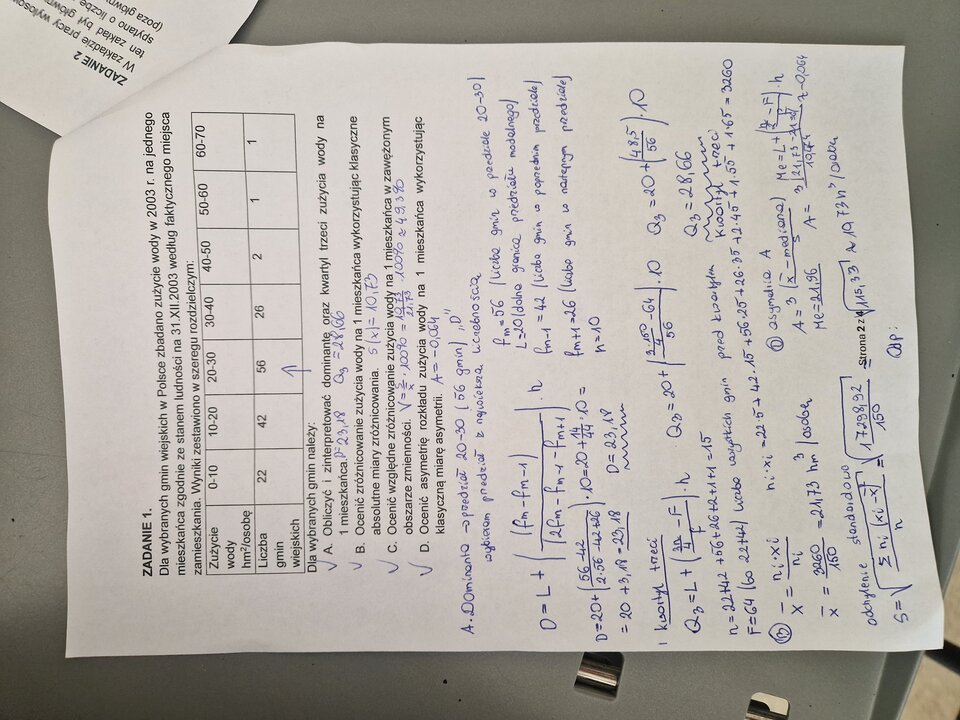 ZADANIE 2
W zakładzie pracy wylosow
ten zakład był główn
spytano o liczbę
(poza główn
ZADANIE 1.
Dla wybranych gmin wiejskich w Polsce zbadano zużycie wody w 2003 r. na jednego
mieszkańca zgodnie ze stanem ludności na 31.XII.2003 według faktycznego miejsca
zamieszkania. Wyniki zestawiono w szeregu rozdzielczym:
Zużycie wody hm²/osobę 0-10 10-20 20-30 30-40 40-50 50-60 60-70
Liczba gmin wiejskich 22 42 56 26 2 1 1
Dla wybranych gmin należy:
A. Obliczyć i zinterpretować dominantę oraz kwartyl trzeci zużycia wody na
1 mieszkańca. D=23,18 Q₃=28,66
B. Ocenić zróżnicowanie zużycia wody na 1 mieszkańca wykorzystując klasyczne
absolutne miary zróżnicowania. s(x)=10,73
C. Ocenić względne zróżnicowanie zużycia wody na 1 mieszkańca w zawężonym
obszarze zmienności. V=s/x̄·100%=10,73/21,73·100%≈49,3%
D. Ocenić asymetrię rozkładu zużycia wody na 1 mieszkańca wykorzystując
klasyczną miarę asymetrii. A=-0,064
A. Dominanta → przedział 20-30 (56 gmin) „D”
wybieram przedział z największą liczebnością
D = L + ((fm-fm-1)/(2fm-fm-1-fm+1)) · h
fm=56 (liczba gmin w przedziale 20-30)
L=20 (dolna granica przedziału modalnego)
fm-1=42 (liczba gmin w poprzednim przedziale)
fm+1=26 (liczba gmin w następnym przedziale)
h=10
D=20+((56-42)/(2·56-42+26))·10=20+14/44·10=
=20+3,18=23,18
D=23,18
kwartyl trzeci
Q₃=L+((3n/4-F)/f)·h
Q₃=20+((3·150/4-64)/56)·10
Q₃=20+(48,5/56)·10
Q₃=28,66
kwartyl trzeci
n=22+42+56+26+2+1+1=15
F=64 (bo 22+42) liczba wszystkich gmin przed kwartylem
ni·xi=22·5+42·15+56·25+26·35+2·45+1·55+1·65=3260
x̄=ni·xi/ni
x̄=3260/150=21,73 hm³/osobę
D) asymetria A
A=3(x̄-mediana)/s
Me=L+((n/2-F)/f)·h
Me=21,96
A=
≈-0,064
odchylenie standardowe
S=√(∑ni(xi-x̄)²/n)=√(17298,92/150)=√115,33
Strona 2 z 4
Odp: